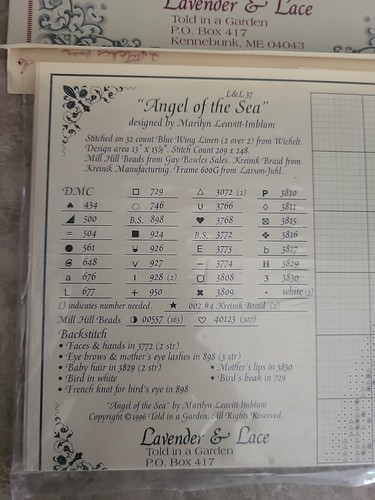 Lavender & Lace
Told in a Garden
P.O. Box 417
Kennebunk, ME 04043
L&L 37
"Angel of the Sea"
designed by Marilyn Leavitt-Imblum
Stitched on 32 count Blue Wing Linen (2 over 2) from Wichelt.
Design area 13" x 15½". Stitch Count 209 x 248.
Mill Hill Beads from Gay Bowles Sales. Kreinik Braid from
Kreinik Manufacturing. Frame 600G from Larson-Juhl.
DMC 729 3072 (2) P 3810
434 746 U 3766 3811
500 B.S. 898 3768 3815
504 924 B.S. 3772 3816
561 926 E 3773 b 3817
648 V 927 3774 H 3829
a 676 928 (2) 3808 3 3830
L 677 + 950 3809 white (3)
( ) indicates number needed. ★ 002 #4 Kreinik Braid (2)
Mill Hill Beads 00557 (163) ♡ 40123 (307)
Backstitch
• Faces & hands in 3772 (2 str)
• Eye brows & mother's eye lashes in 898 (3 str)
• Baby hair in 3829 (2 str) • Mother's lips in 3830
• Bird in white • Bird's beak in 729
• French knot for bird's eye in 898
"Angel of the Sea" by Marilyn Leavitt-Imblum
Copyright ©1996 Told in a Garden. All Rights Reserved.
Lavender & Lace
Told in a Garden
P.O. Box 417